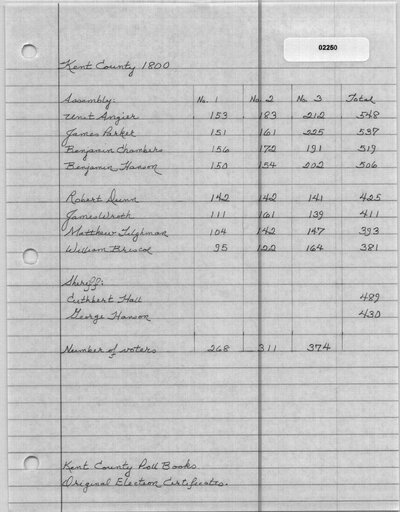 02250
Kent County 1800
Assembly: No. 1 No. 2 No. 3 Total
Unit Angier 153 183 212 548
James Parker 151 161 225 537
Benjamin Chambers 156 172 191 519
Benjamin Hanson 150 154 202 506
Robert Dunn 142 142 141 425
James Wroth 111 161 139 411
Matthew Tilghman 104 142 147 393
William Briscoe 95 122 164 381
Sheriff:
Cuthbert Hall 489
George Hanson 430
Number of voters 268 311 374
Kent County Poll Books
Original Election Certificates.